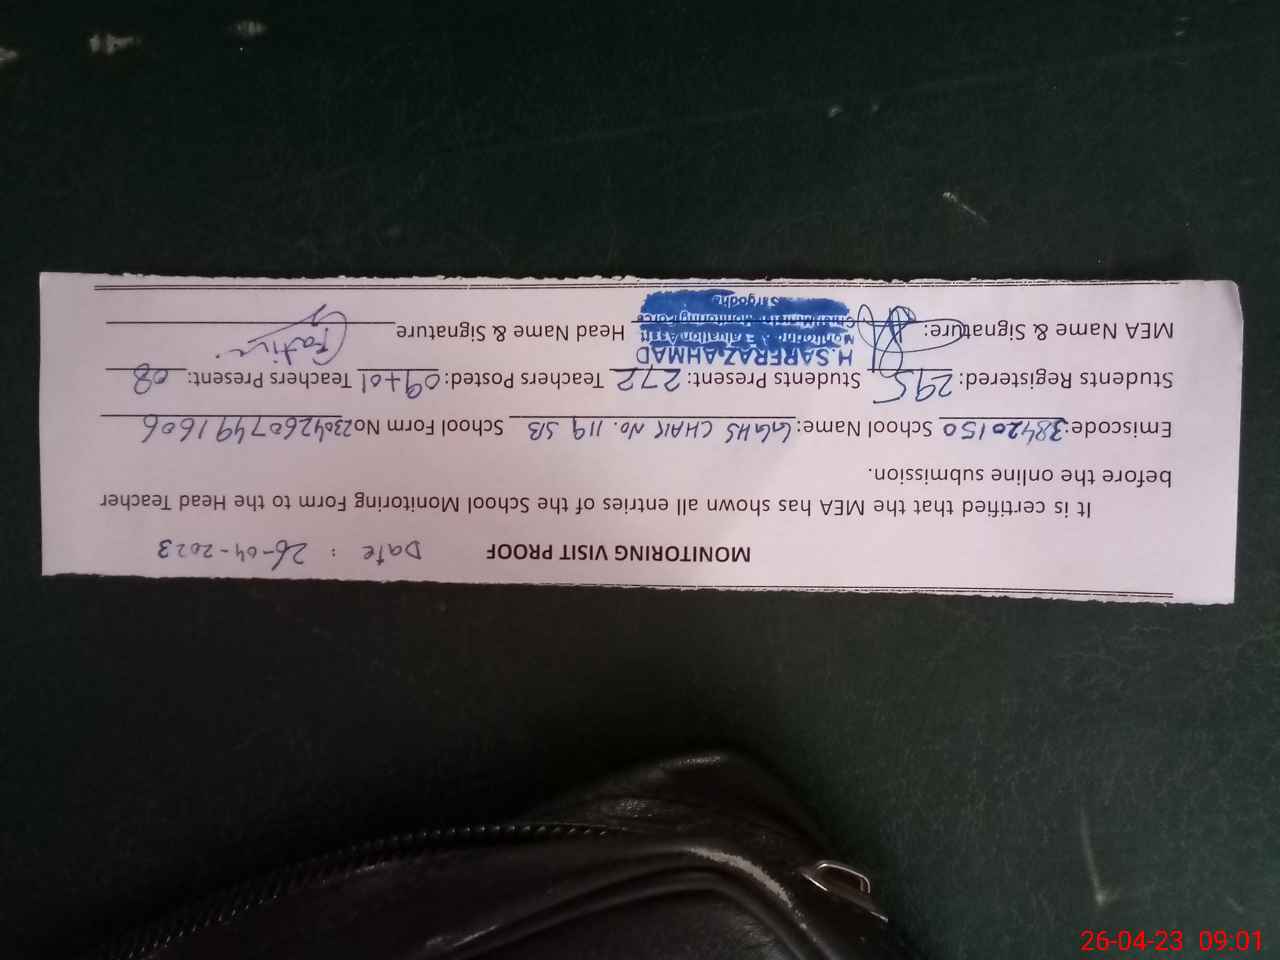 MONITORING VISIT PROOF Date : 26-04-2023
It is certified that the MEA has shown all entries of the School Monitoring Form to the Head Teacher
before the online submission.
Emiscode: 38420150 School Name: GGHS CHAK No. 119 SB School Form No 2304260749 1606
Students Registered: 295 Students Present: 272 Teachers Posted: 09+01 Teachers Present: 08
MEA Name & Signature: Head Name & Signature
H.SARFRAZ AHMAD
Monitoring & Evaluation Asst:
Monitoring Force
Sargodha
26-04-23 09:01